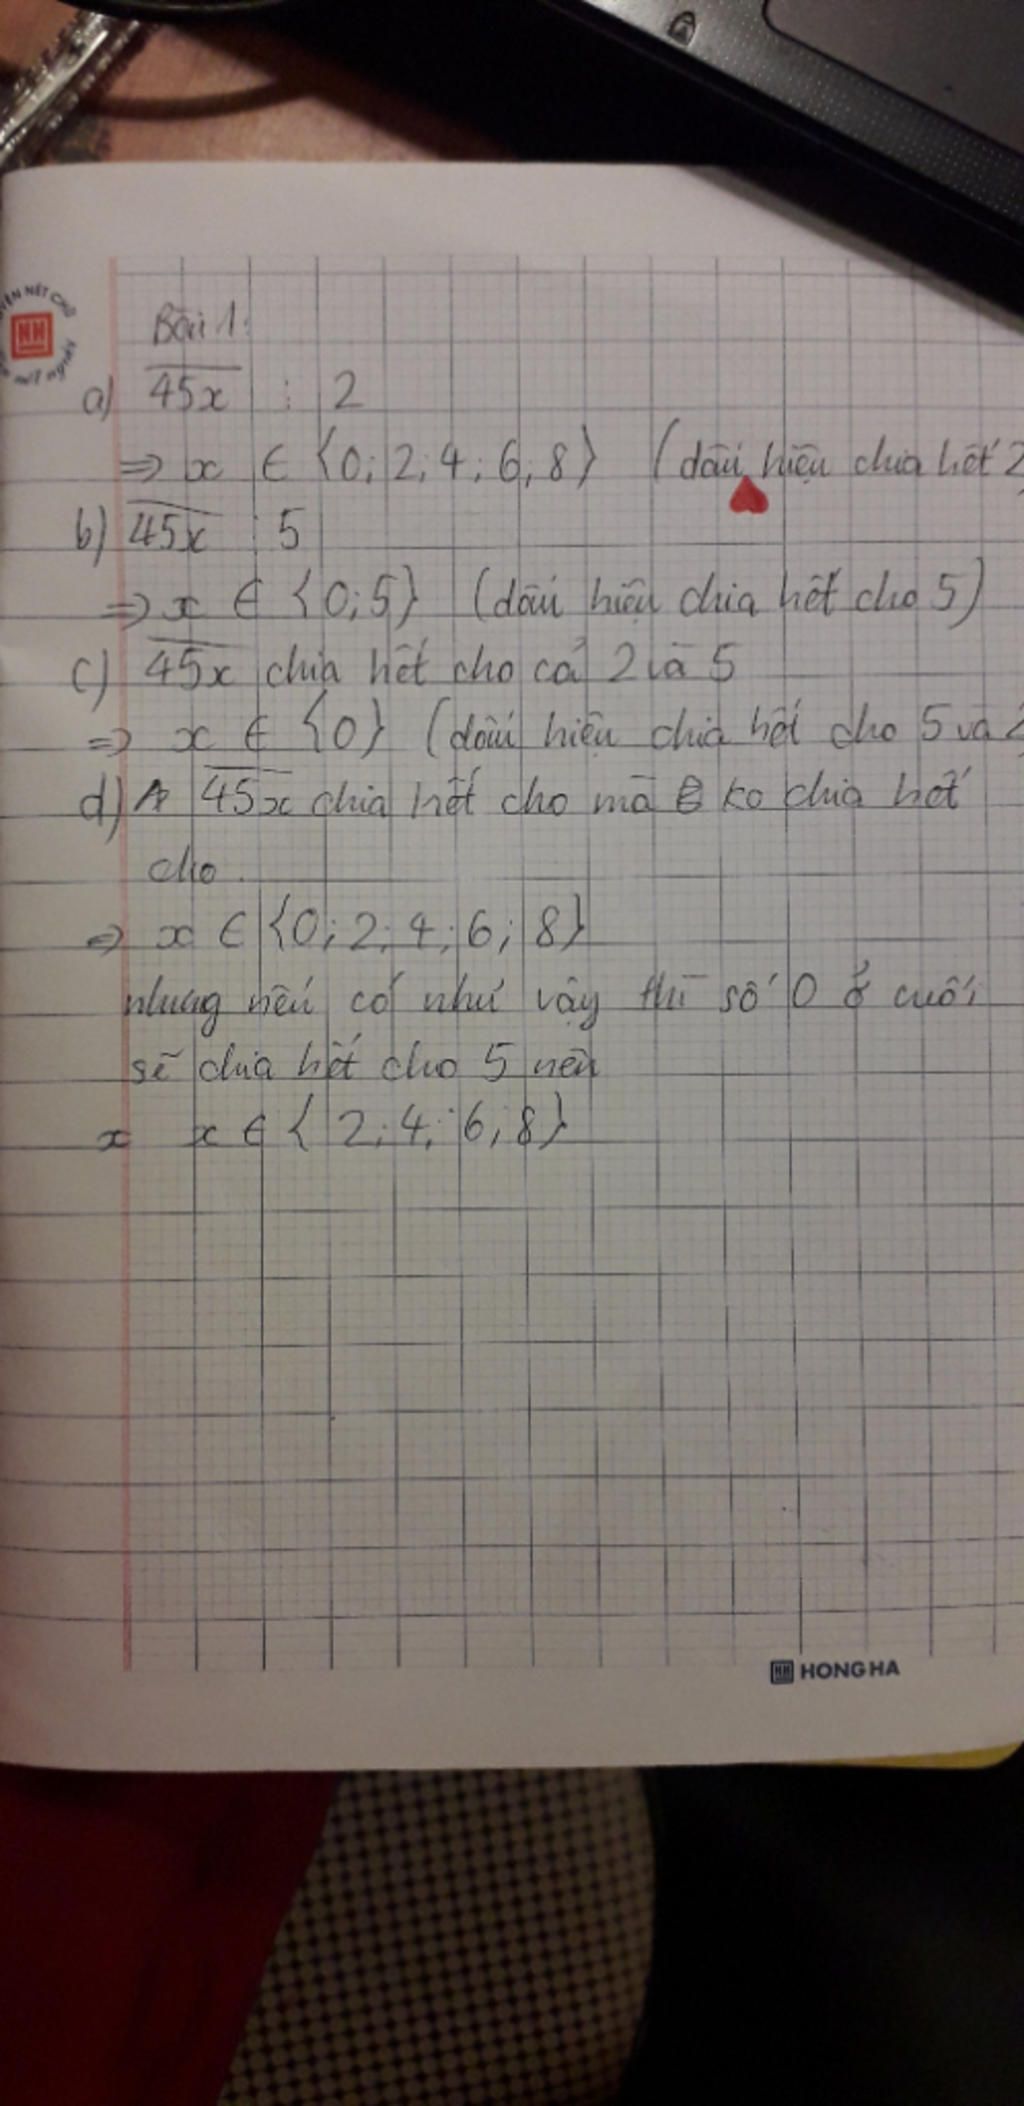 Bài 1:
a) 45x ⋮ 2
=> x ∈ {0; 2; 4; 6; 8} (dấu hiệu chia hết 2
b) 45x ⋮ 5
=> x ∈ {0; 5} (dấu hiệu chia hết cho 5)
c) 45x chia hết cho cả 2 và 5
=> x ∈ {0} (dấu hiệu chia hết cho 5 và 2
d) 45x chia hết cho mà ko chia hết
cho
=> x ∈ {0; 2; 4; 6; 8}
nhưng nếu có như vậy thì số 0 ở cuối
sẽ chia hết cho 5 nên
x x ∈ {2; 4; 6; 8}
HONG HA